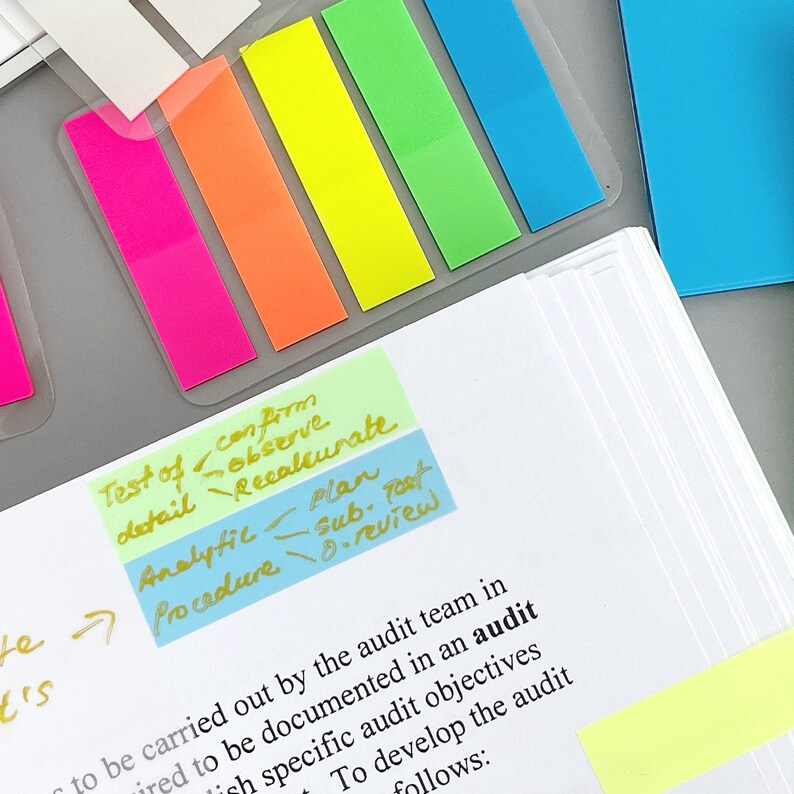 Test of confirm
observe
detail Recalcunate
Analytic Plan
sub. Test
Procedure O. review
te →
t's
s to be carried out by the audit team in
ired to be documented in an audit
lish specific audit objectives
To develop the audit
follows: